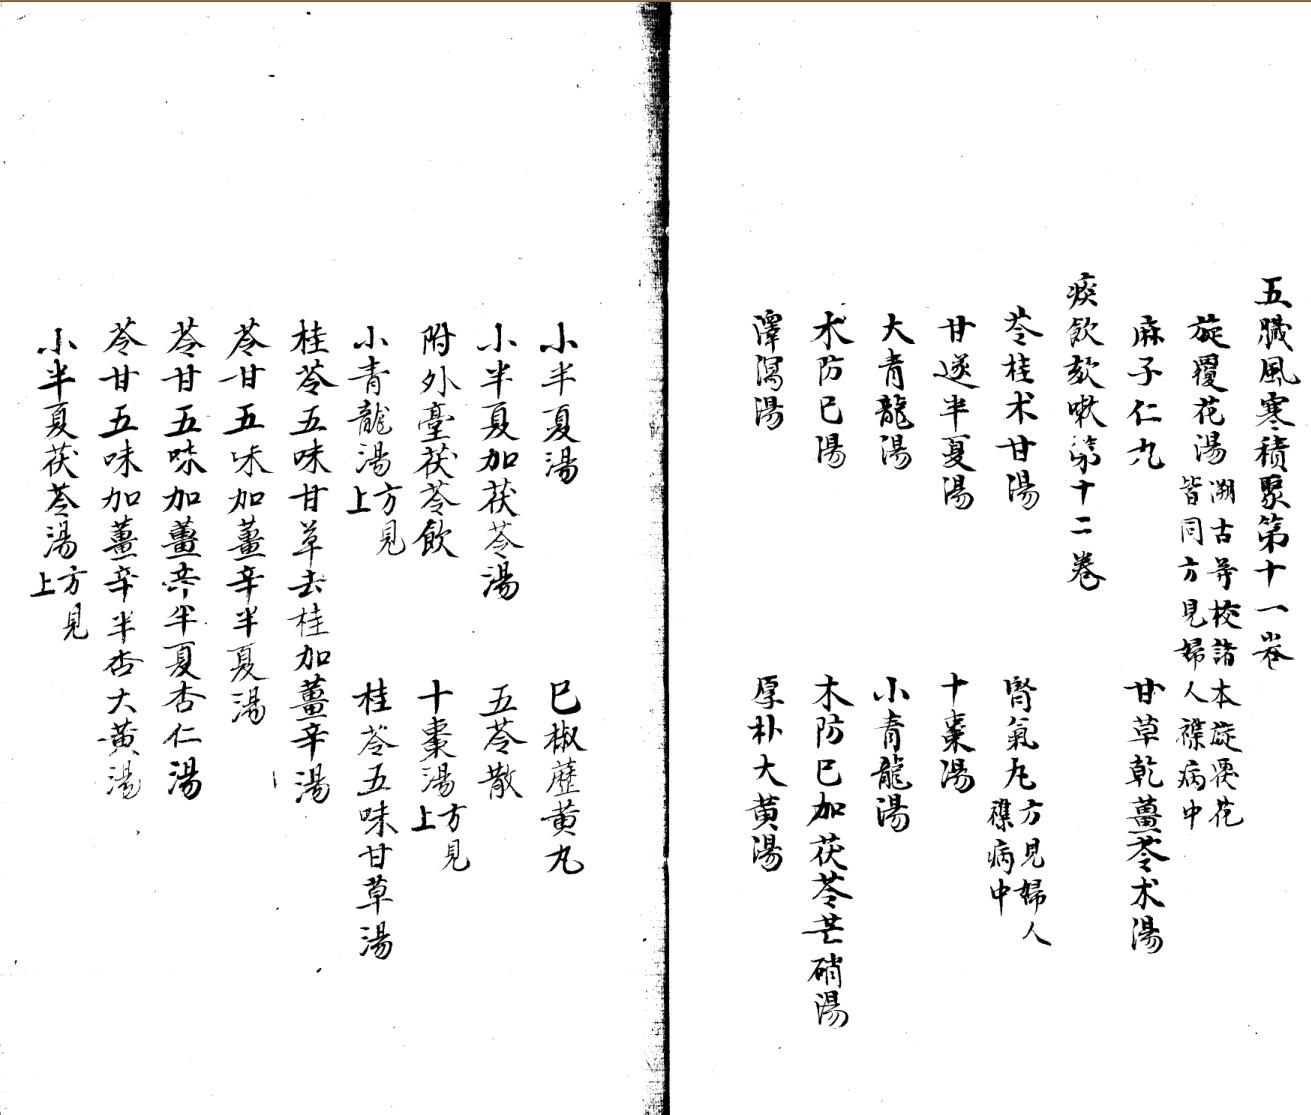 五臟風寒積聚第十一卷
旋覆花湯 溯古并校諸本旋覆花
皆同方見婦人襍病中
麻子仁丸 甘草乾薑苓朮湯
痰飲欬嗽第十二卷
苓桂朮甘湯 腎氣丸 方見婦人
襍病中
甘遂半夏湯 十棗湯
大青龍湯 小青龍湯
木防已湯 木防已加茯苓芒硝湯
澤瀉湯 厚朴大黃湯
小半夏湯 已椒藶黃丸
小半夏加茯苓湯 五苓散
附外臺茯苓飲 十棗湯 方見
上
小青龍湯 方見
上 桂苓五味甘草湯
桂苓五味甘草去桂加薑辛湯
苓甘五味加薑辛半夏湯
苓甘五味加薑辛半夏杏仁湯
苓甘五味加薑辛半杏大黃湯
小半夏茯苓湯 方見
上